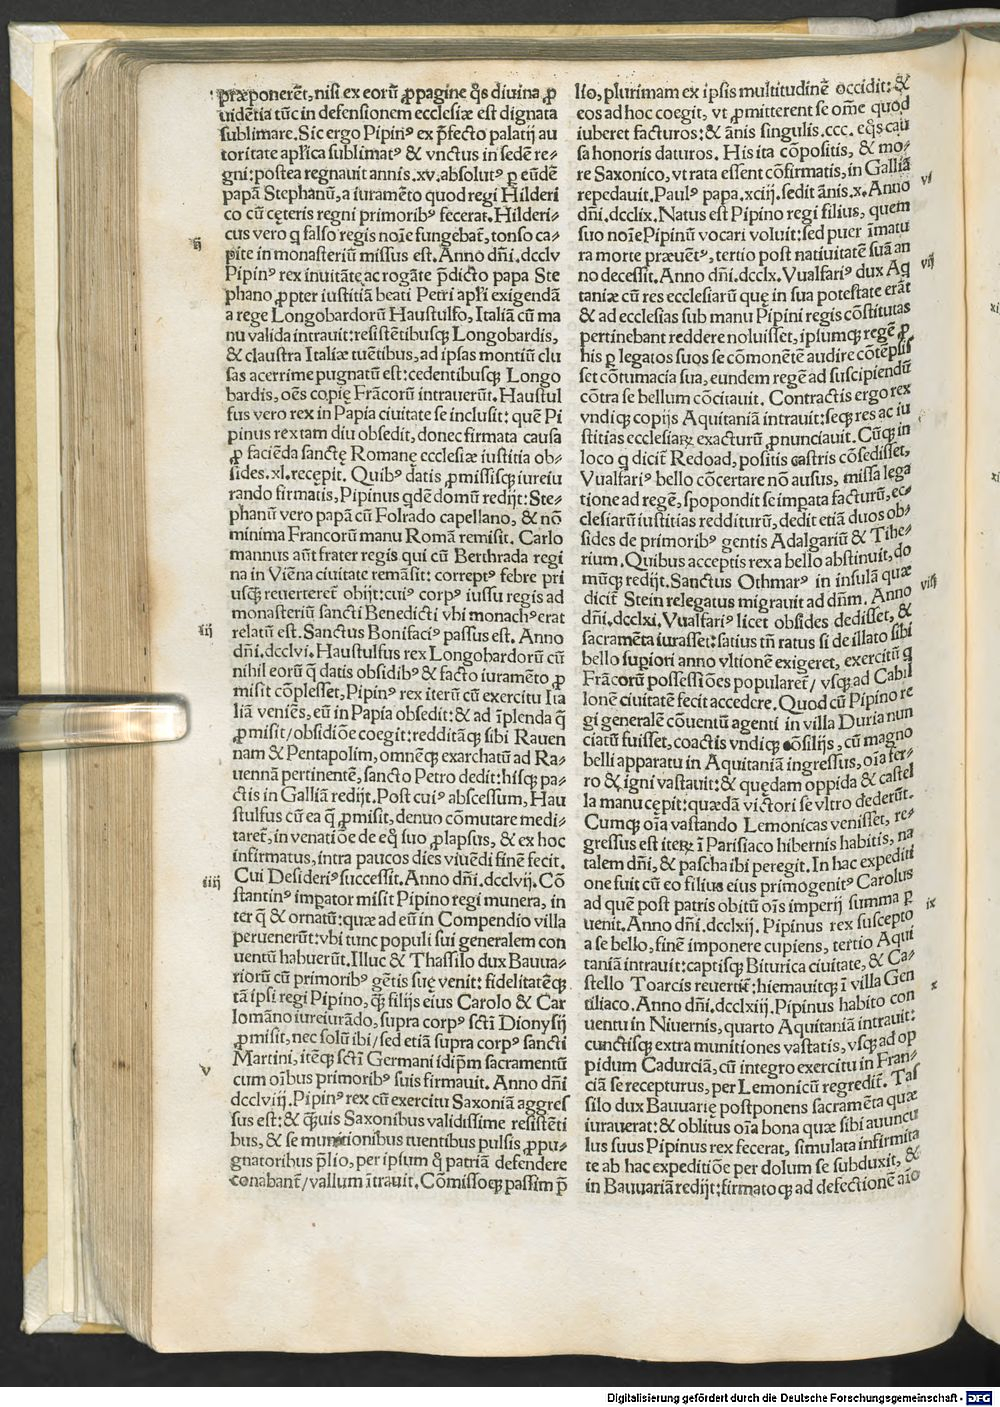 præponerēt, nisi ex eorū ꝓpagine q̄s diuina ꝓ
uidētia tūc in defensionem ecclesiæ est dignata
sublimare. Sic ergo Pipinꝰ ex p̄fecto palatij au
toritate apl̄ica sublimatꝰ & vnctus in sedē re⸗
gni: postea regnauit annis .xv. absolutꝰ ꝑ eūdē
papā Stephanū, a iuramēto quod regi Hilderi
co cū cęteris regni primoribꝰ fecerat. Hilderi⸗
cus vero q falso regis noīe fungebat̄, tonso ca⸗
ij
pite in monasteriū missus est. Anno dn̄i. dcclv
Pipinꝰ rex inuitāte ac rogāte p̄dicto papa Ste
phano ꝓpter iustitiā beati Petri apl̄i exigendā
a rege Longobardorū Haustulfo, Italiā cū ma
nu valida intrauit: resistētibusqꝫ Longobardis,
& claustra Italiæ tuētibus, ad ipsas montiū clu
sas acerrime pugnatū est: cedentibusqꝫ Longo
bardis, oēs copię Frācorū intrauerūt. Haustul
fus vero rex in Papia ciuitate se inclusit: quē Pi
pinus rex tam diu obsedit, donec firmata causa
ꝓ faciēda sanctę Romanę ecclesiæ iustitia ob⸗
sides .xl. recępit. Quibꝰ datis ꝓmissisqꝫ iureiu
rando firmatis, Pipinus qdē domū redijt: Ste⸗
phanū vero papā cū Folrado capellano, & nō
minima Francorū manu Romā remisit. Carlo
mannus aūt frater regis qui cū Berthrada regi
na in Viēna ciuitate remāsit: correptꝰ febre pri
usqꝫ reuerteret̄ obijt: cuiꝰ corpꝰ iussu regis ad
monasteriū sancti Benedicti vbi monachꝰ erat
iij
relatū est. Sanctus Bonifaciꝰ passus est. Anno
dn̄i. dcclvi. Haustulfus rex Longobardorū cū
nihil eorū q̄ datis obsidibꝰ & facto iuramēto ꝓ
misit cōplesset, Pipinꝰ rex iterū cū exercitu Ita
liā veniēs, eū in Papia obsedit: & ad īplenda q̄
ꝓmisit/ obsidiōe coegit: redditāqꝫ sibi Rauen
nam & Pentapolim, omnēqꝫ exarchatū ad Ra⸗
uennā pertinentē, sancto Petro dedit: hisqꝫ pa⸗
ctis in Galliā redijt. Post cuiꝰ abscessum, Hau
stulfus cū ea q̄ ꝓmisit, denuo cōmutare medi⸗
taret̄, in venatiōe de eq̄ suo ꝓlapsus, & ex hoc
infirmatus, intra paucos dies viuēdi finē fecit.
iiij
Cui Desideriꝰ successit. Anno dn̄i. dcclvij. Cō
stantinꝰ impator misit Pipino regi munera, in
ter q̄ & ornatū: quæ ad eū in Compendio villa
peruenerūt: vbi tunc populi sui generalem con
uentū habuerūt. Illuc & Thassilo dux Bauua⸗
riorū cū primoribꝰ gētis suę venit: fidelitatēqꝫ
tā ipsi regi Pipino, qꝫ̄ filijs eius Carolo & Car
lomāno iureiurādo, supra corpꝰ scti Dionysij
ꝓmisit, nec solū ibi/ sed etiā supra corpꝰ sancti
Martini, itēqꝫ scti Germani idip̄m sacramentū
v
cum oībus primoribꝰ suis firmauit. Anno dn̄i
dcclviij. Pipinꝰ rex cū exercitu Saxoniā aggres
sus est: & qꝫ̄uis Saxonibus validissime resistēti
bus, & se munitionibus tuentibus pulsis ꝓpu⸗
gnatoribus p̄lio, per ipsum q̄ patriā defendere
conabant̄/ vallum ītrauit. Cōmissoqꝫ passim p̄
lio, plurimam ex ipsis multitudinē occidit: &
eos ad hoc coegit, vt ꝓmitterent se om̄e quod
iuberet facturos: & ānis singulis .ccc. eq̄s cau
sa honoris daturos. His ita cōpositis, & mo⸗
re Saxonico, vt rata essent cōfirmatis, in Galliā
repedauit. Paulꝰ papa .xciij. sedit ānis .x. Anno
vi
dn̄i. dcclix. Natus est Pipino regi filius, quem
suo noīe Pipinū vocari voluit: sed puer īmatu
ra morte præuētꝰ, tertio post natiuitatē suā an
no decessit. Anno dn̄i. dcclx. Vualfariꝰ dux Aq
vij
taniæ cū res ecclesiarū quę in sua potestate erāt
& ad ecclesias sub manu Pipini regis cōstitutas
pertinebant reddere noluisset, ipsumqꝫ regē ꝓ
his ꝑ legatos suos se cōmonētē audire cōtēpsis
set cōtumacia sua, eundem regē ad suscipiendū
cōtra se bellum cōcitauit. Contractis ergo rex
vndiqꝫ copijs Aquitaniā intrauit: seqꝫ res ac iu
stitias ecclesiaꝝ exacturū ꝓnunciauit. Cūqꝫ in
loco q dicit̄ Redoad, positis castris cōsedisset,
Vualfariꝰ bello cōcertare nō ausus, missa lega
tione ad regē, spopondit se impata facturū, ec⸗
clesiarū iustitias redditurū, dedit etiā duos ob⸗
sides de primoribꝰ gentis Adalgariū & Tihe⸗
rium. Quibus acceptis rex a bello abstinuit, do
mūqꝫ redijt. Sanctus Othmarꝰ in insulā quæ
viij
dicit̄ Stein relegatus migrauit ad dn̄m. Anno
dn̄i. dcclxi. Vualfariꝰ licet obsides dedisset, &
sacramēta iurasset: satius tn̄ ratus si de illato sibi
bello supiori anno vltionē exigeret, exercitū q
Frācorū possessiōes popularet̄/ vsqꝫ ad Cabil
lonē ciuitatē fecit accedere. Quod cū Pipino re
gi generalē cōuentū agenti in villa Duria nun
ciatū fuisset, coactis vndiqꝫ cōsilijs, cū magno
belli apparatu in Aquitaniā ingressus, oīa fer⸗
ro & igni vastauit: & quędam oppida & castel
la manu cępit: quædā victori se vltro dederūt.
Cumqꝫ oīa vastando Lemonicas venisset, re⸗
gressus est iteꝝ ī Parisiaco hibernis habitis, na
talem dn̄i, & pascha ibi peregit. In hac expediti
one fuit cū eo filius eius primogenitꝰ Carolus
ad quē post patris obitū oīs imperij summa ꝑ
ix
uenit. Anno dn̄i. dcclxij. Pipinus rex suscepto
a se bello, finē imponere cupiens, tertio Aqui
taniā intrauit: captisqꝫ Biturica ciuitate, & Ca⸗
stello Toarcis reuertit̄: hiemauitqꝫ ī villa Gen
x
tiliaco. Anno dn̄i. dcclxiij. Pipinus habito con
uentu in Niuernis, quarto Aquitaniā intrauit:
cunctisqꝫ extra munitiones vastatis, vsqꝫ ad op
pidum Cadurciā, cū integro exercitu in Fran⸗
ciā se recepturus, per Lemonicū regredit̄. Tas
silo dux Bauuarię postponens sacramēta quæ
iurauerat: & oblitus oīa bona quæ sibi auuncu
lus suus Pipinus rex fecerat, simulata infirmita
te ab hac expeditiōe per dolum se subduxit, &
in Bauuariā redijt: firmatoqꝫ ad defectionē aīo
Digitalisierung gefördert durch die Deutsche Forschungsgemeinschaft - DFG